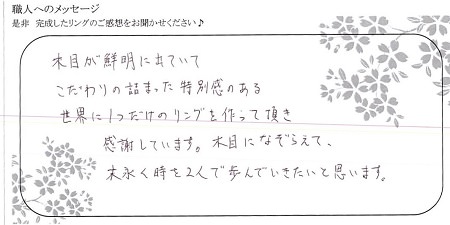 職人へのメッセージ
是非 完成したリングのご感想をお聞かせください♪
木目が鮮明に出ていて
こだわりの詰まった特別感のある
世界に1つだけのリングを作って頂き
感謝しています。木目になぞらえて、
末永く時を2人で歩んでいきたいと思います。